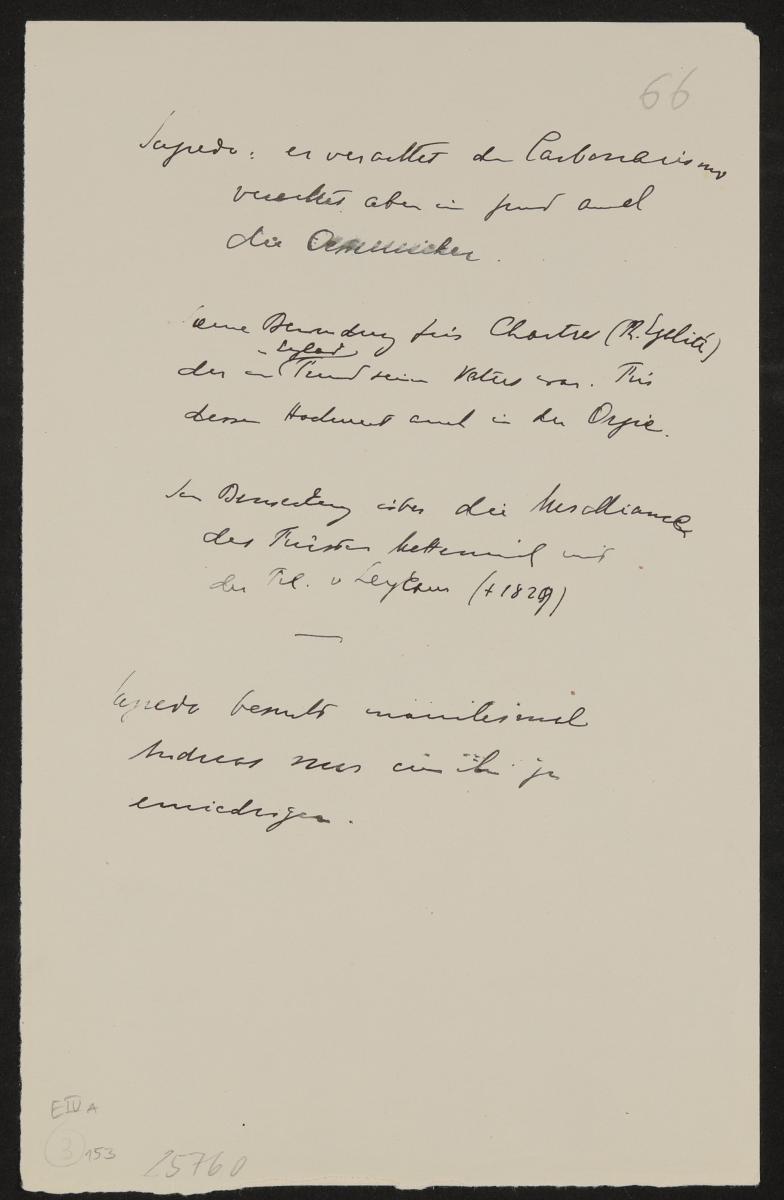 66
Sagredo: er verachtet den Carbonarismo
verachtet aber im Grund auch
die Oesterreicher.
seine Bewunderung für Chartres (Ph. Egalité)
England
der in Freund seines Vaters war. Für
dessen Hochmut auch in der Orgie.
Sein Bemerkung über die Mesalliance
des Fürsten Metternich mit
der Frl. v Leykam (+ 1829)
Sagredo benutzt
Andreas nur um ihn zu
erniedrigen.
E IV A
3 153
25760